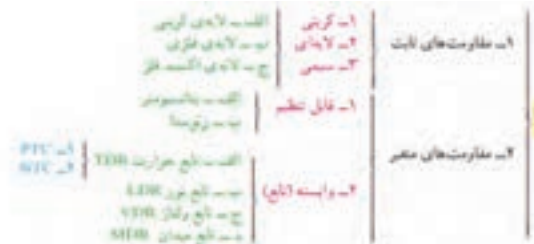 ۱ــ مقاومت‌های ثابت
۱ــ کربنی
۲ــ لایه‌ای
الف ــ لایه‌ی کربنی
ب ــ لایه‌ی فلزی
ج ــ لایه‌ی اکسید فلز
۳ــ سیمی
۲ــ مقاومت‌های متغیر
۱ــ قابل تنظیم
الف ــ پتانسیومتر
ب ــ رئوستا
۲ــ وابسته (تابع)
الف ــ تابع حرارت TDR
۱ــ PTC
۲ــ NTC
ب ــ تابع نور LDR
ج ــ تابع ولتاژ VDR
د ــ تابع میدان MDR